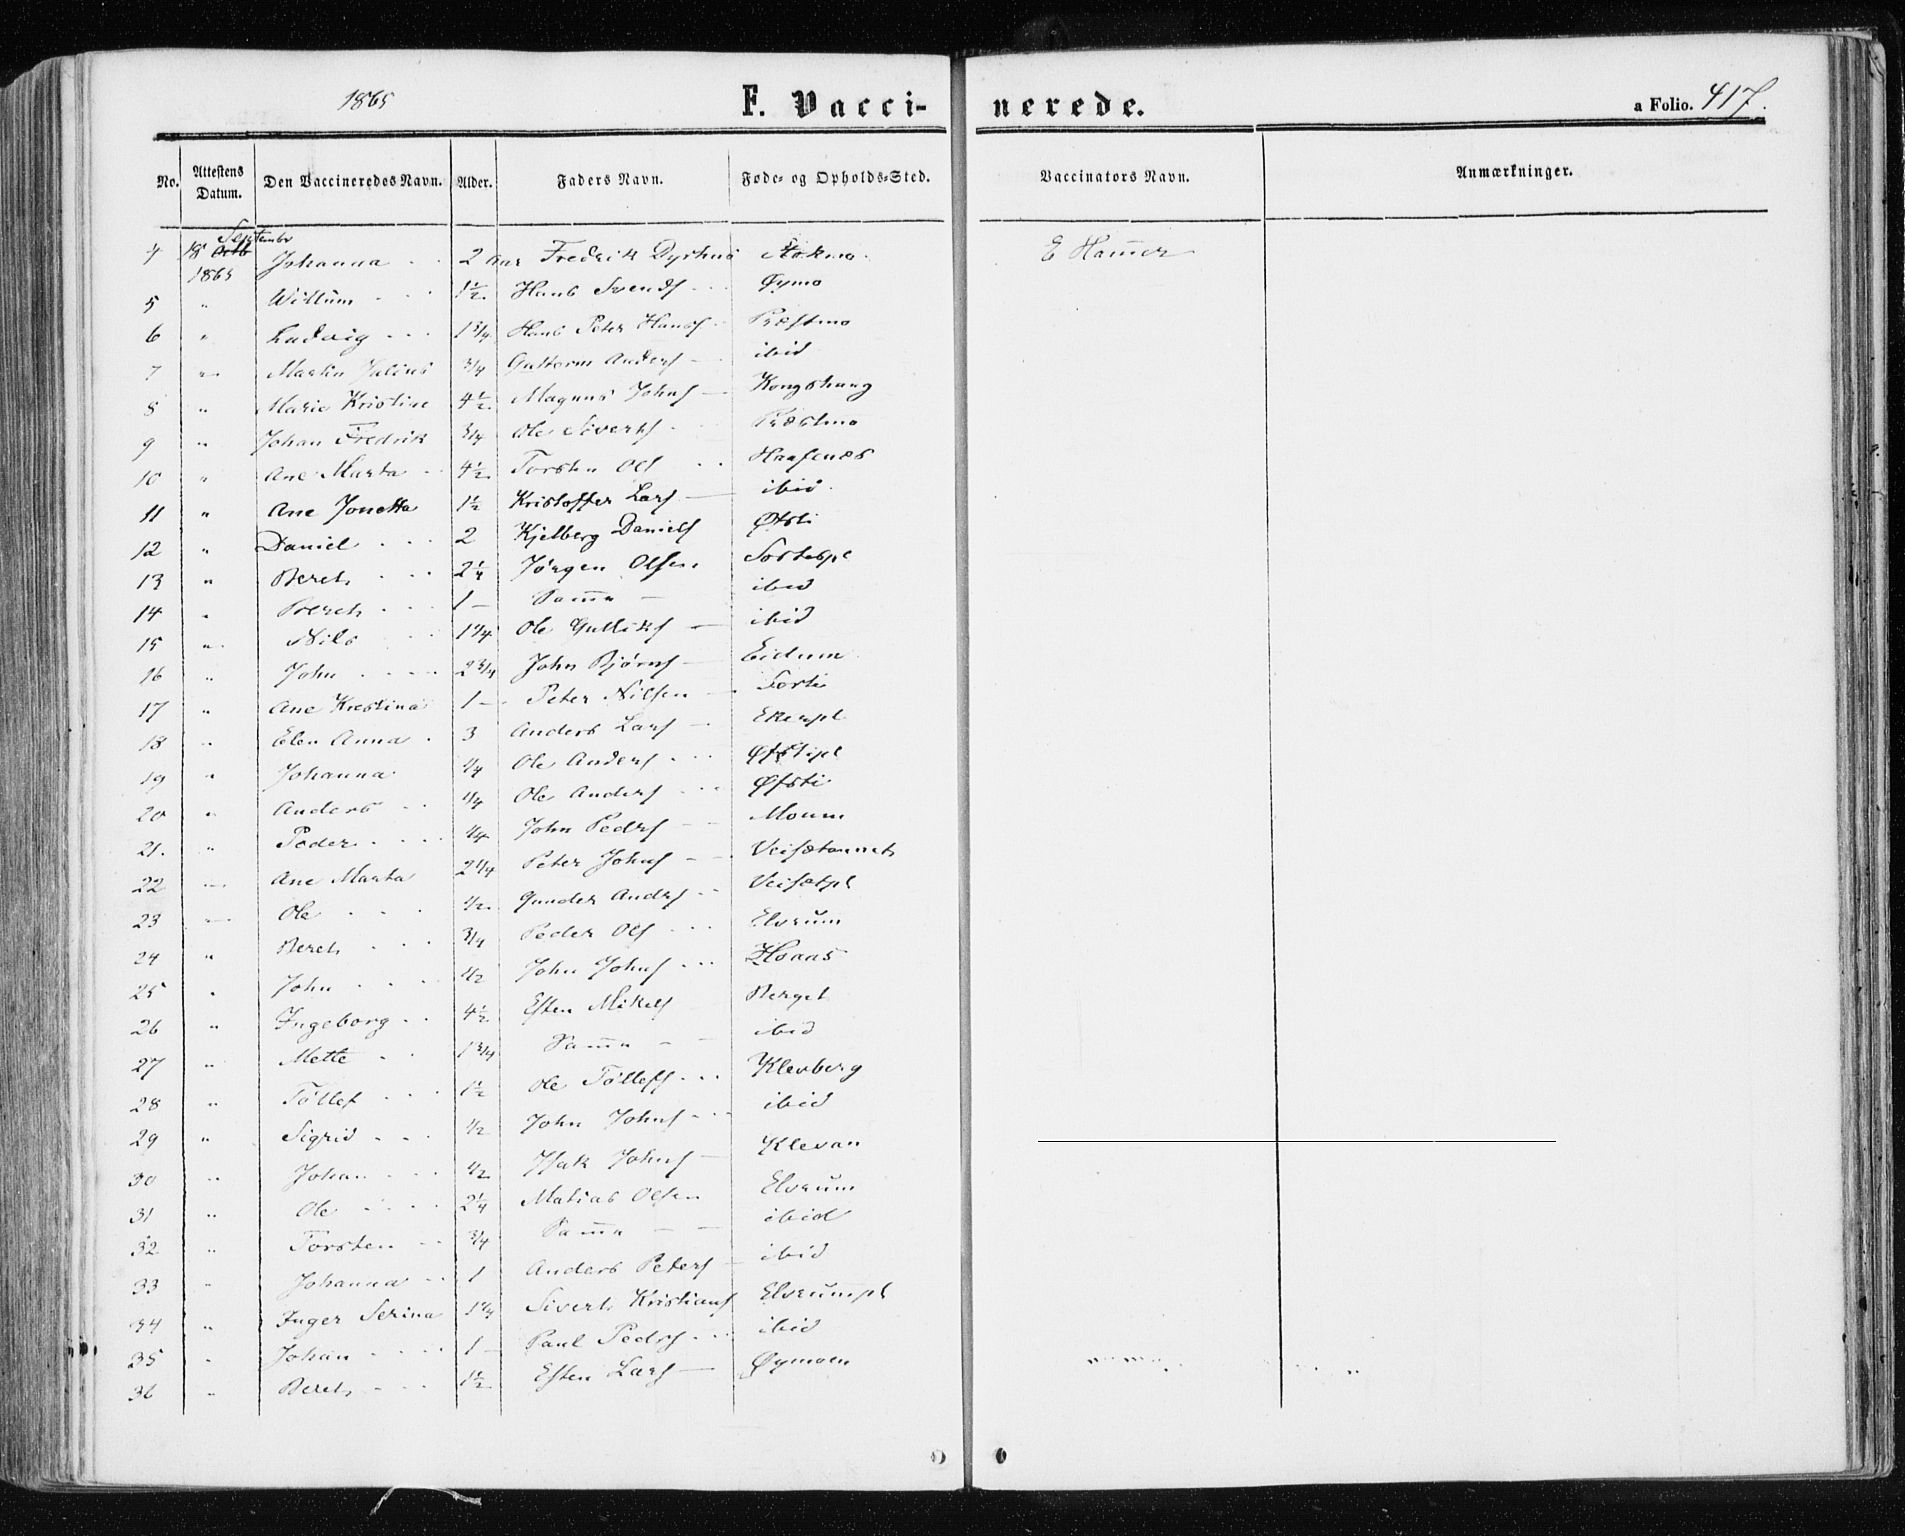 1865 F. Vacci- nerede. a Folio. 417.
No. Attestens Datum. Den Vaccineredes Navn. Alder. Faders Navn. Føde- og Opholds-Sted. Vaccinators Navn. Anmærkninger.
Septembr
4 18 Octb 1865 Johanna 2 Aar Fredrik Dyrhus Stokmo. E Hammer
5 " Willum 1½ Hans Svends Øymo
6 " Ludvig 1¾ Hans Peter Hans Præstmo
7 " Martin Julius ¾ Guttorm Anders ibid
8 " Marie Kristine 4½ Magnus Johns Kongshaug
9 " Johan Fredrik ¾ Ole Siverts Præstmo
10 " Ane Marta 4½ Torsten Ols
11 " Ane Jonetta 1½ Kristoffer Lars ibid.
12 " Daniel 2 Kjelberg Daniels Øfsti
13 " Beret 2¼ Jørgen Olsen
14 " Beret 1 - Samme - ibid
15 " Nils 1¼ Ole Gulliks ibid
16 " John 2¾ John Bjørns Eidum
17 " Ane Kristina 1 - Peter Nilsen
18 " Elen Anna 3 Anders Lars Ekerpl
19 " Johanna ¼ Ole Anders Øfstipl
20 " Anders ¼ Ole Anders Øfsti
21. " Peder ¼ John Peders Moum
22 " Ane Marta 2¼ Peter Johns
23 " Ole ½ Gunder Anders Veisetpl
24 " Beret ¾ Peder Ols Elvrum
25 " John ½ John Johns
26 " Ingeborg 4½ Esten Mikels Berget
27 " Mette 1¾ Samme - - ibid
28 " Tøllef 1½ Ole Tøllefs Klevberg
29 " Sigrid ½ John Johns ibid
30 " Johan ½ Isak Johns Klevan
31 " Ole 2¼ Matias Olsen Elvrum
32 " Torsten ¾ Samme - - ibid
33 " Johanna 1 Anders Peters ibid
34 " Inger Serina 1¼ Sivert Kristians Elvrumpl
35 " Johan 1 - Paul Peders ibid
36 " Beret 1½ Esten Lars Øymoen